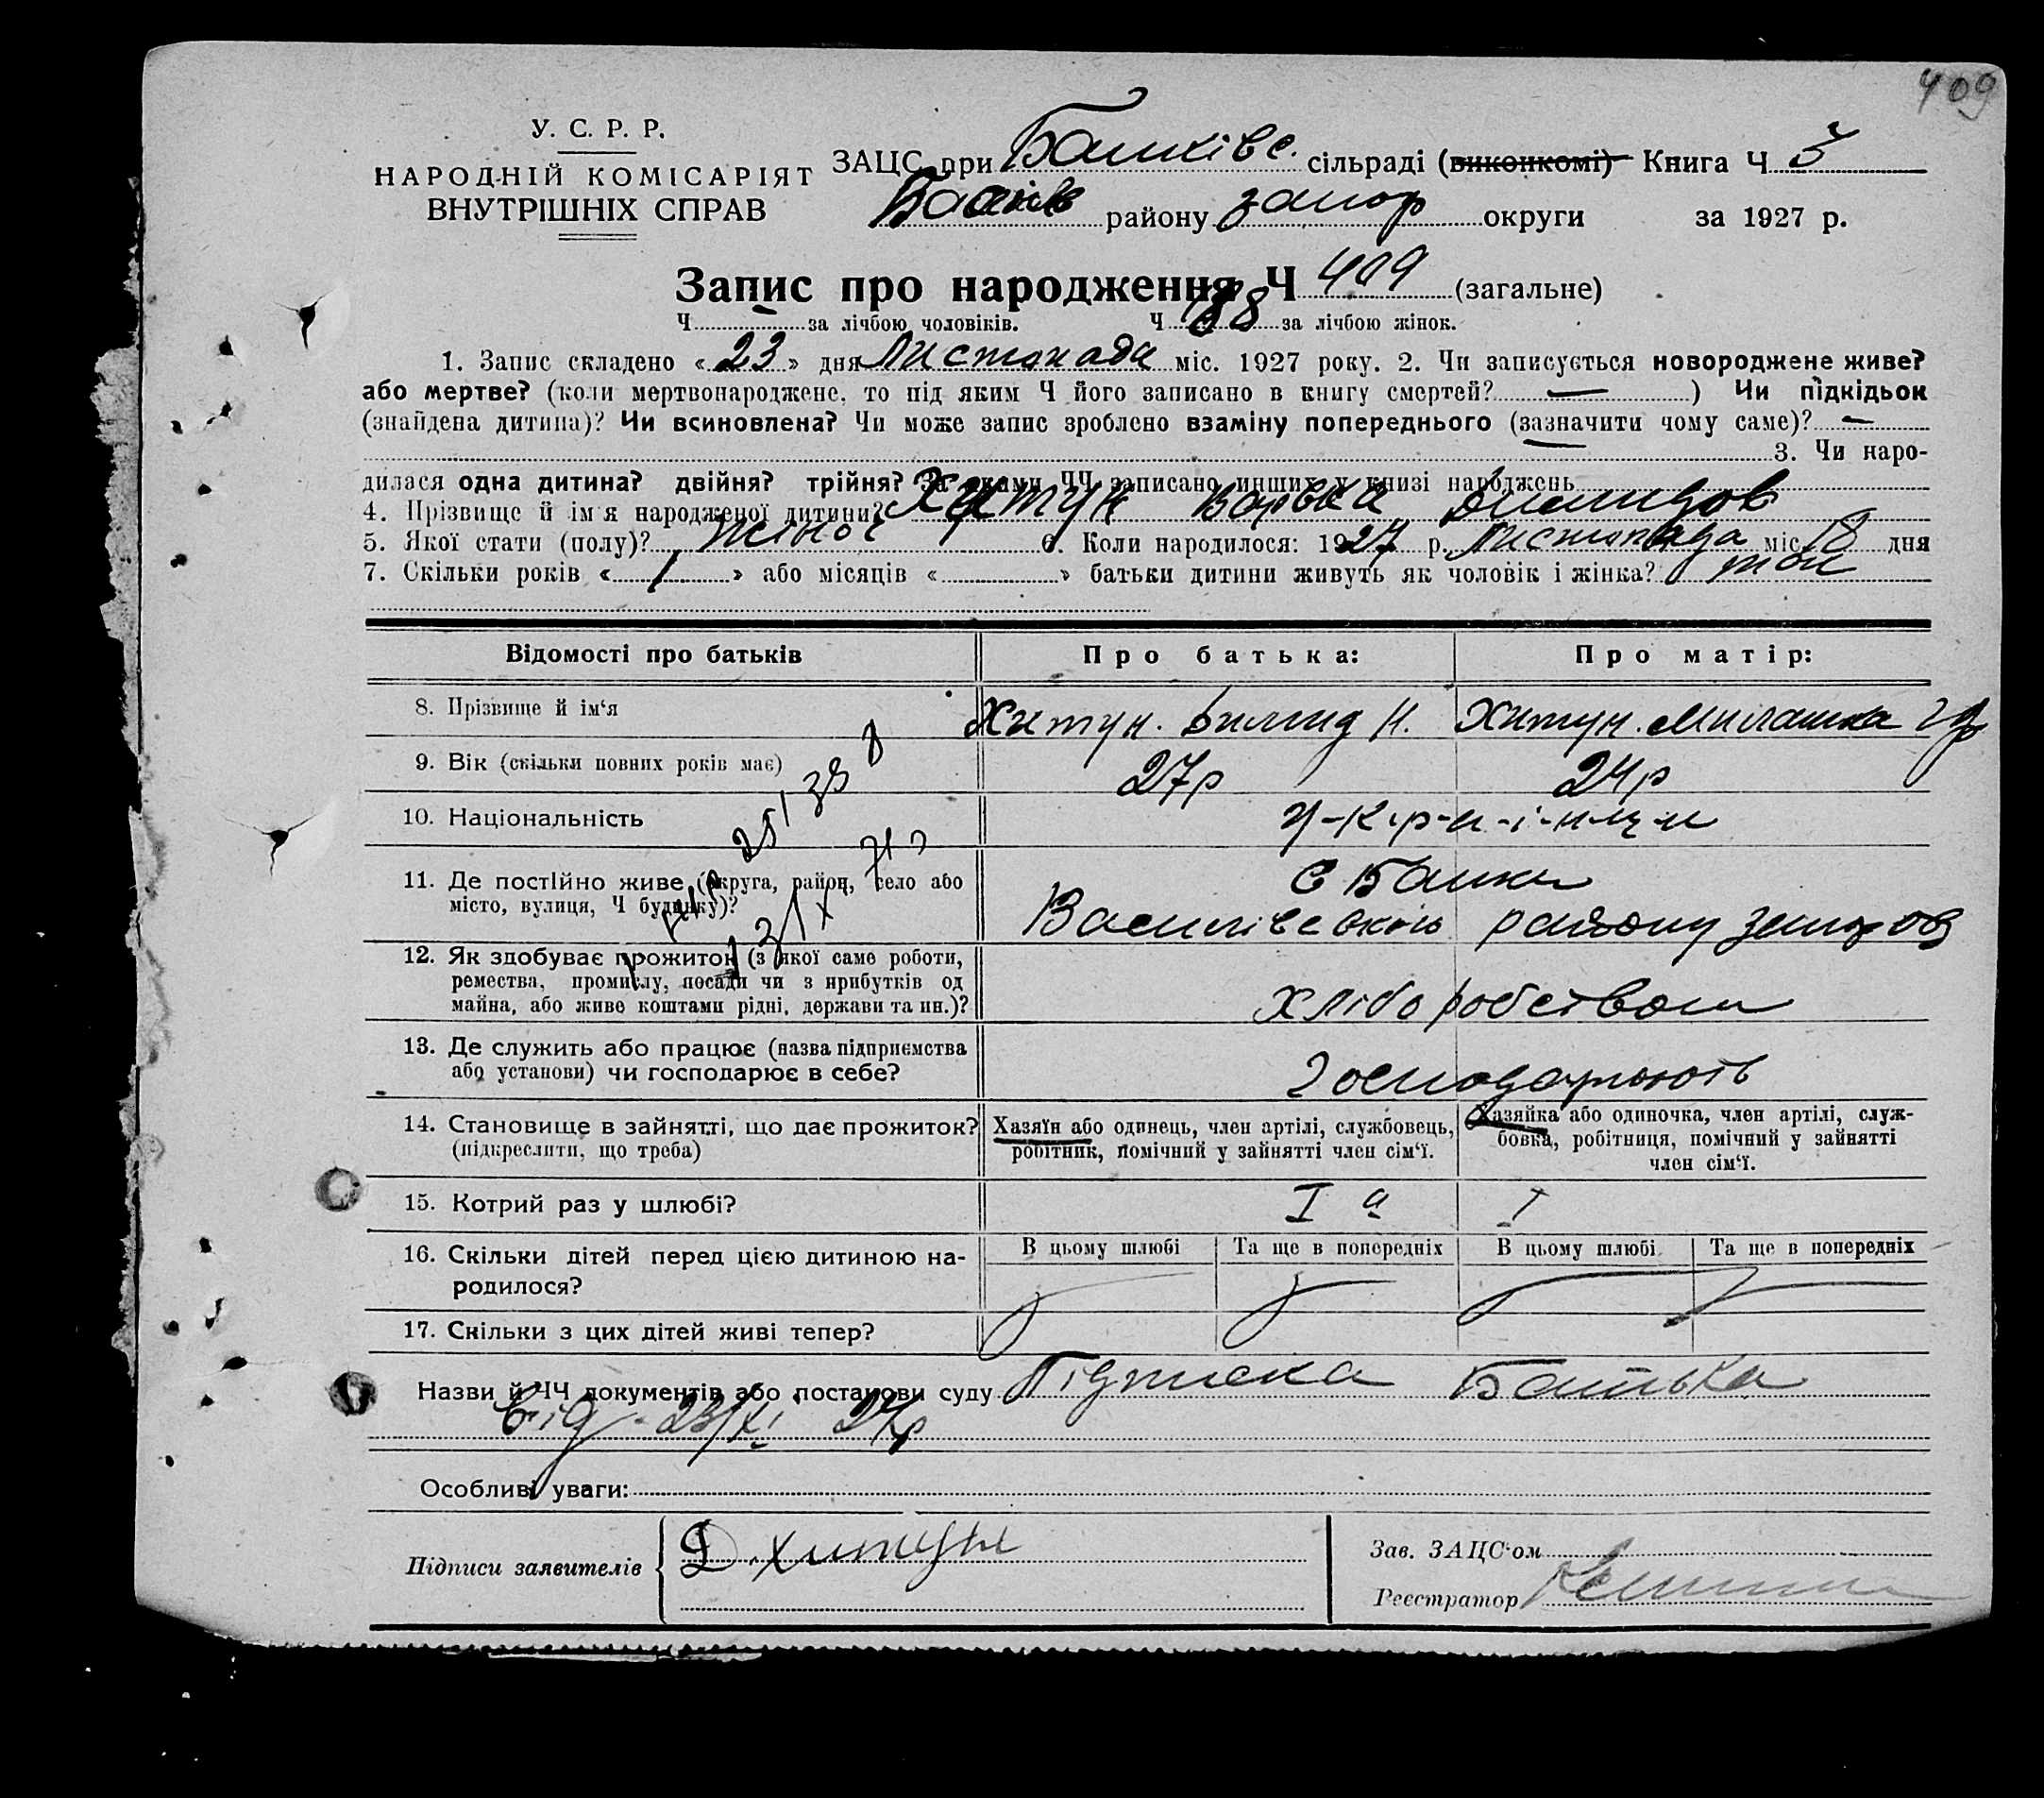 409
У. С. Р. Р.
НАРОДНІЙ КОМІСАРІЯТ
ВНУТРІШНІХ СПРАВ
ЗАЦС при сільраді (виконкомі) Книга Ч. 3
району запор округи за 1927 р.
Запис про народження Ч 409 (загальне)
Ч. — за лічбою чоловіків. Ч 188 за лічбою жінок.
1. Запис складено « 23 » дня Листопада міс. 1927 року. 2. Чи записується новороджене живе?
або мертве? (коли мертвонароджене, то під яким Ч його записано в книгу смертей? — ) Чи підкідьок
(знайдена дитина)? Чи всиновлена? Чи може запис зроблено взаміну попереднього (зазначити чому саме)? —
— 3. Чи наро-
дилася одна дитина? двійня? трійня? За якими ЧЧ записано инших у книзі народжень
4. Прізвище й ім'я народженої дитини? Хитун Варвка
5. Якої стати (полу)? жіноч 6. Коли народилося: 1927 р. Листопада міс. 18 дня
7. Скільки років « 1 » або місяців « » батьки дитини живуть як чоловік і жінка?
Відомості про батьків Про батька: Про матір:
8. Прізвище й ім‘я Хитун. Н. Хитун. Милашка
9. Вік (скільки повних років має) 27р 24р
10. Національність У-к-р-а-ї-н-ц-и
11. Де постійно живе (округа, район, село або
місто, вулиця, Ч будинку)?
С Балки
Василівського району
12. Як здобуває прожиток (з якої саме роботи,
ремества, промислу, посади чи з прибутків од
майна, або живе коштами рідні, держави та ин.)?
Хліборобством
13. Де служить або працює (назва підприємства
або установи) чи господарює в себе?
Господарюють
14. Становище в зайнятті, що дає прожиток?
(підкреслити, що треба)
Хазяїн або одинець, член артілі, службовець,
робітник, помічний у зайнятті член сім‘ї.
Хазяйка або одиночка, член артілі, служ-
бовка, робітниця, помічний у зайнятті
член сім‘ї.
15. Котрий раз у шлюбі? I а I
16. Скільки дітей перед цією дитиною на-
родилося?
В цьому шлюбі Та ще в попередніх В цьому шлюбі Та ще в попередніх
17. Скільки з цих дітей живі тепер?
Назви й ЧЧ документів або постанови суду Підписка Батька
Від 23/XI 27р
Особливі уваги:
Підписи заявителів Д Хитун
Зав. ЗАЦС‘ом
Реєстратор